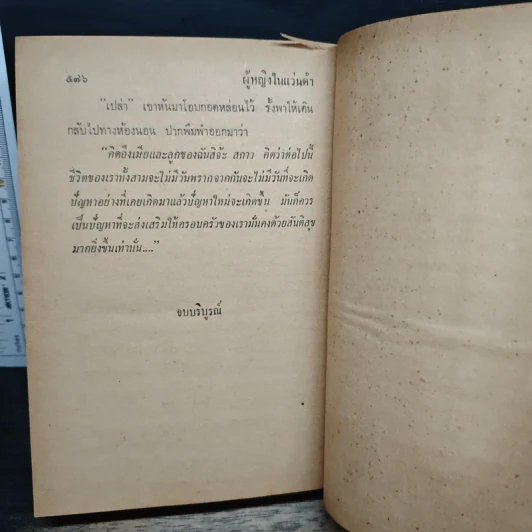 ๕๗๖ ผู้หญิงในแว่นดำ
"เปล่า" เขาหันมาโอบกอดหล่อนไว้ รั้งพาให้เดิน
กลับไปทางห้องนอน ปากพึมพำออกมาว่า
"คิดถึงเมียและลูกของฉันสิจ๊ะ สกาว คิดว่าต่อไปนี้
ชีวิตของเราทั้งสามจะไม่มีวันพรากจากกันจะไม่มีวันที่จะเกิด
ปัญหาอย่างที่เคยเกิดมาแล้วปัญหาใหม่จะเกิดขึ้น มันก็ควร
เป็นปัญหาที่จะส่งเสริมให้ครอบครัวของเรามั่นคงด้วยสันติสุข
มากยิ่งขึ้นเท่านั้น...."
จบบริบูรณ์